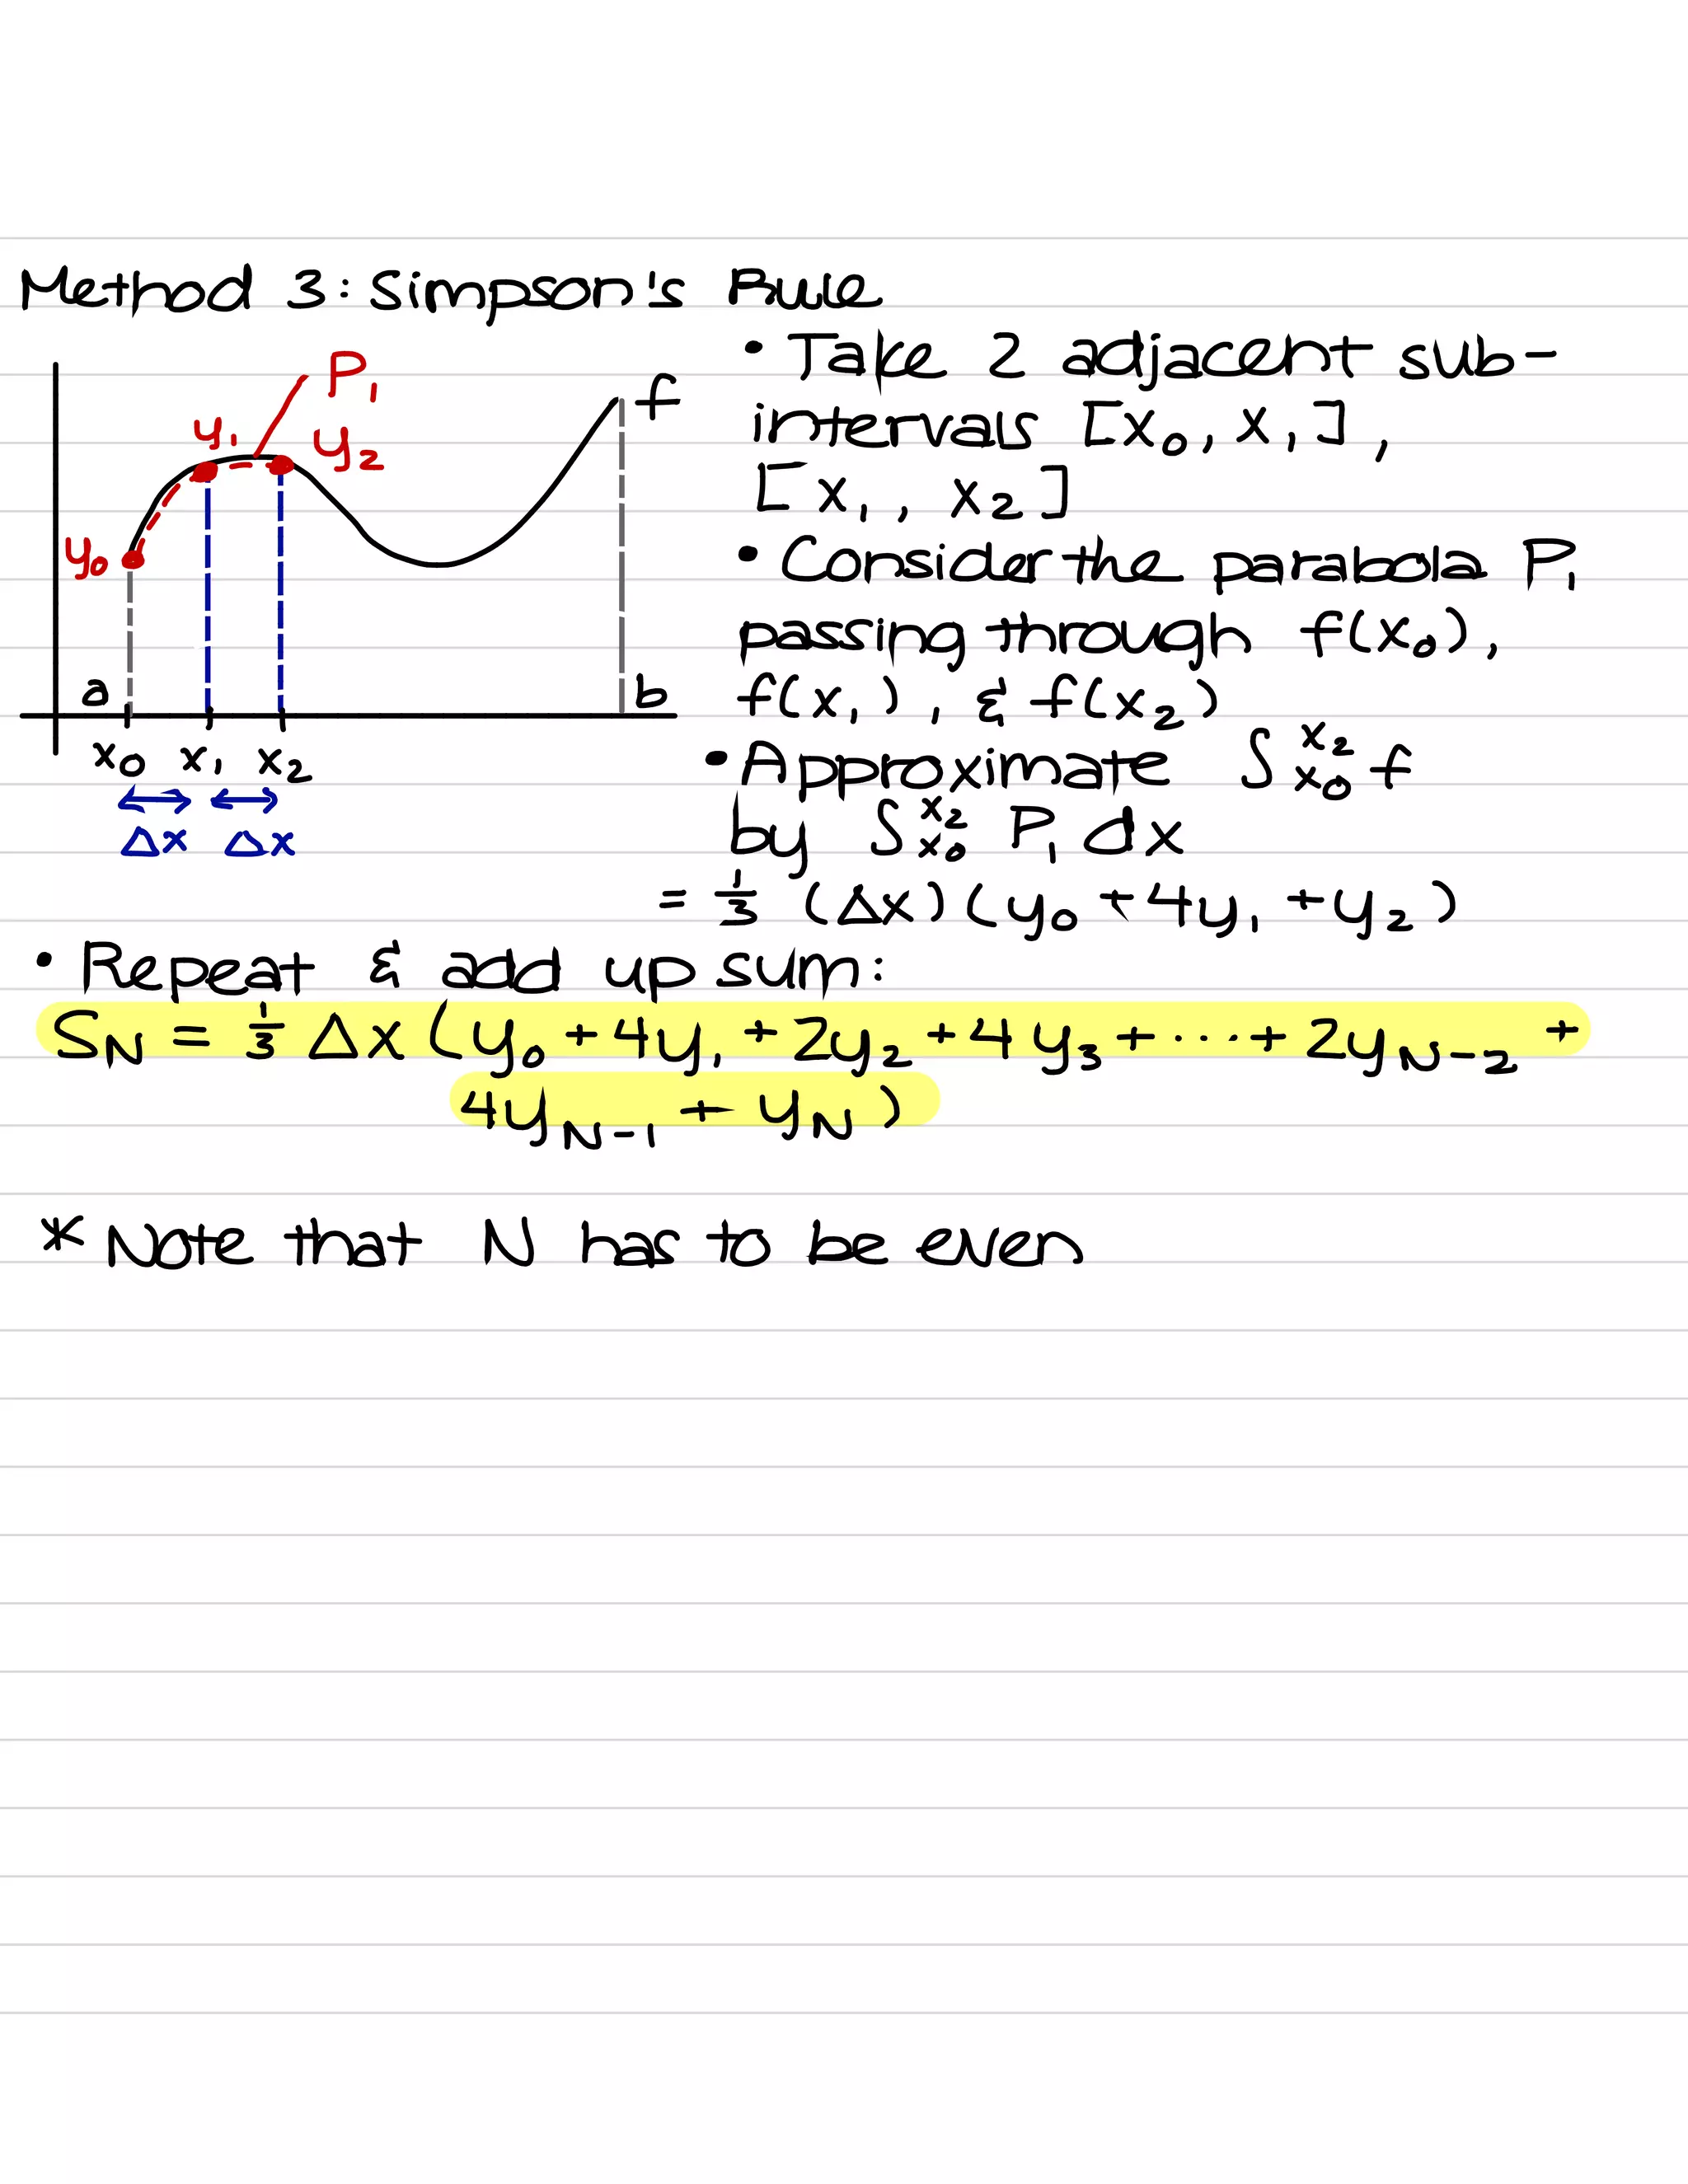 Method 3: Simpson's Rule
• Take 2 adjacent sub-
intervals [x₀, x₁],
[x₁, x₂]
• Consider the parabola P₁
passing through f(x₀),
f(x₁), & f(x₂)
• Approximate ∫ₓ₀ˣ² f
by ∫ₓ₀ˣ² P₁ dx
= 1/3 (Δx)(y₀ + 4y₁ + y₂)
P₁
f
y₁
y₂
y₀
a
b
x₀ x₁ x₂
Δx Δx
• Repeat & add up sum:
S_N = 1/3 Δx (y₀ + 4y₁ + 2y₂ + 4y₃ + ... + 2y_{N-2} +
4y_{N-1} + y_N)
* Note that N has to be even